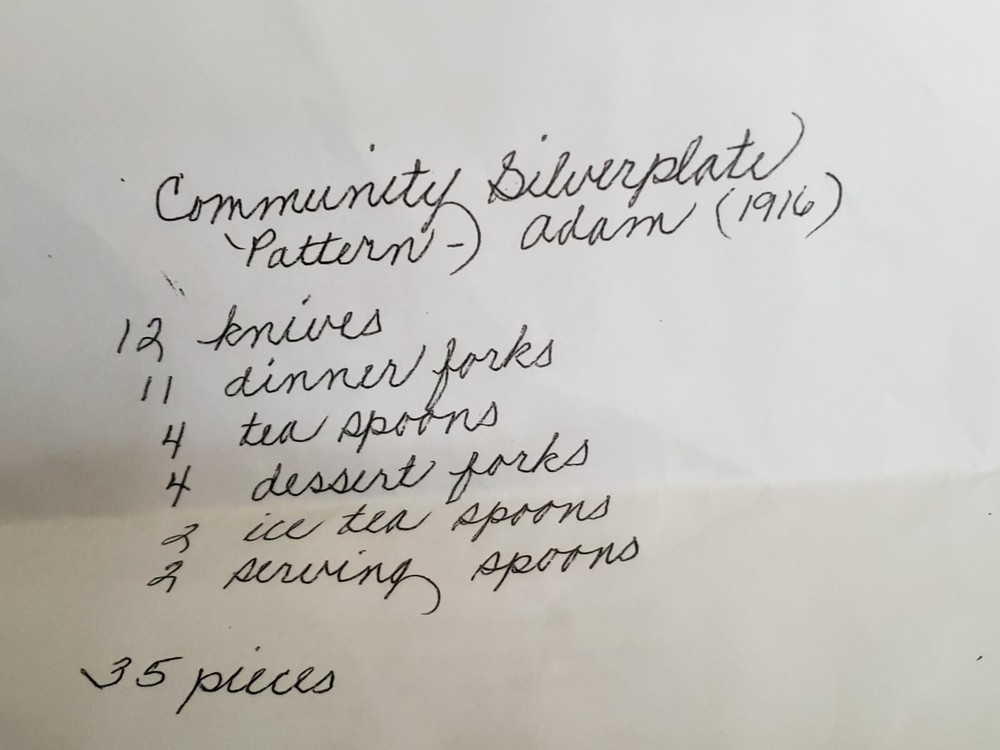 Community Silverplate
Pattern - Adam (1916)
12 knives
11 dinner forks
4 tea spoons
4 dessert forks
2 ice tea spoons
2 serving spoons
35 pieces